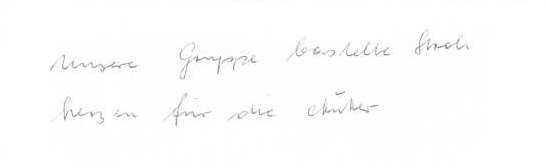 Unsere Gruppe bastelte Stroh
herzen für die Mütter